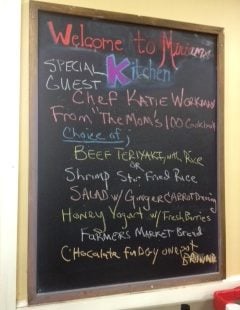 Welcome to Miriam's
SPECIAL Kitchen
GUEST
CHEF KATIE WORKMAN
From "THE MOM'S 100 Cookbook
Choice of;
BEEF TERIYAKI, with Rice
OR
Shrimp Stir Fried Rice
SALAD w/ GINGER CARROT Dressing
Honey Yogurt w/ FRESH Berries
FARMERS MARKET Bread
CHOCOLATE FUDGY one pot
BROWNIE